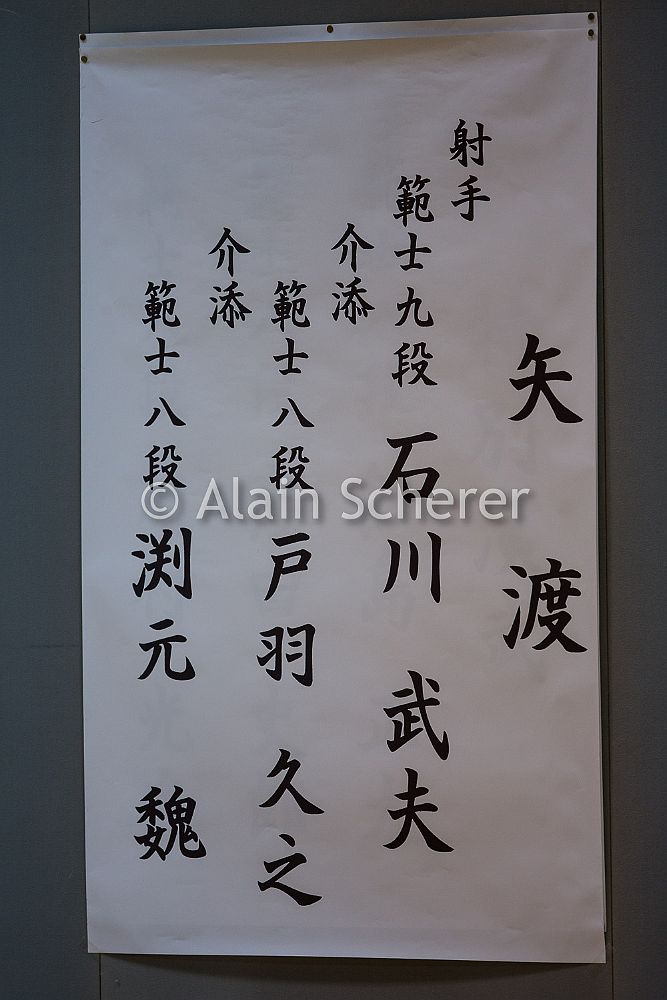 矢渡
射手
範士九段 石川 武夫
介添
範士八段 戸羽 久之
介添
範士八段 渕元 魏
© Alain Scherer